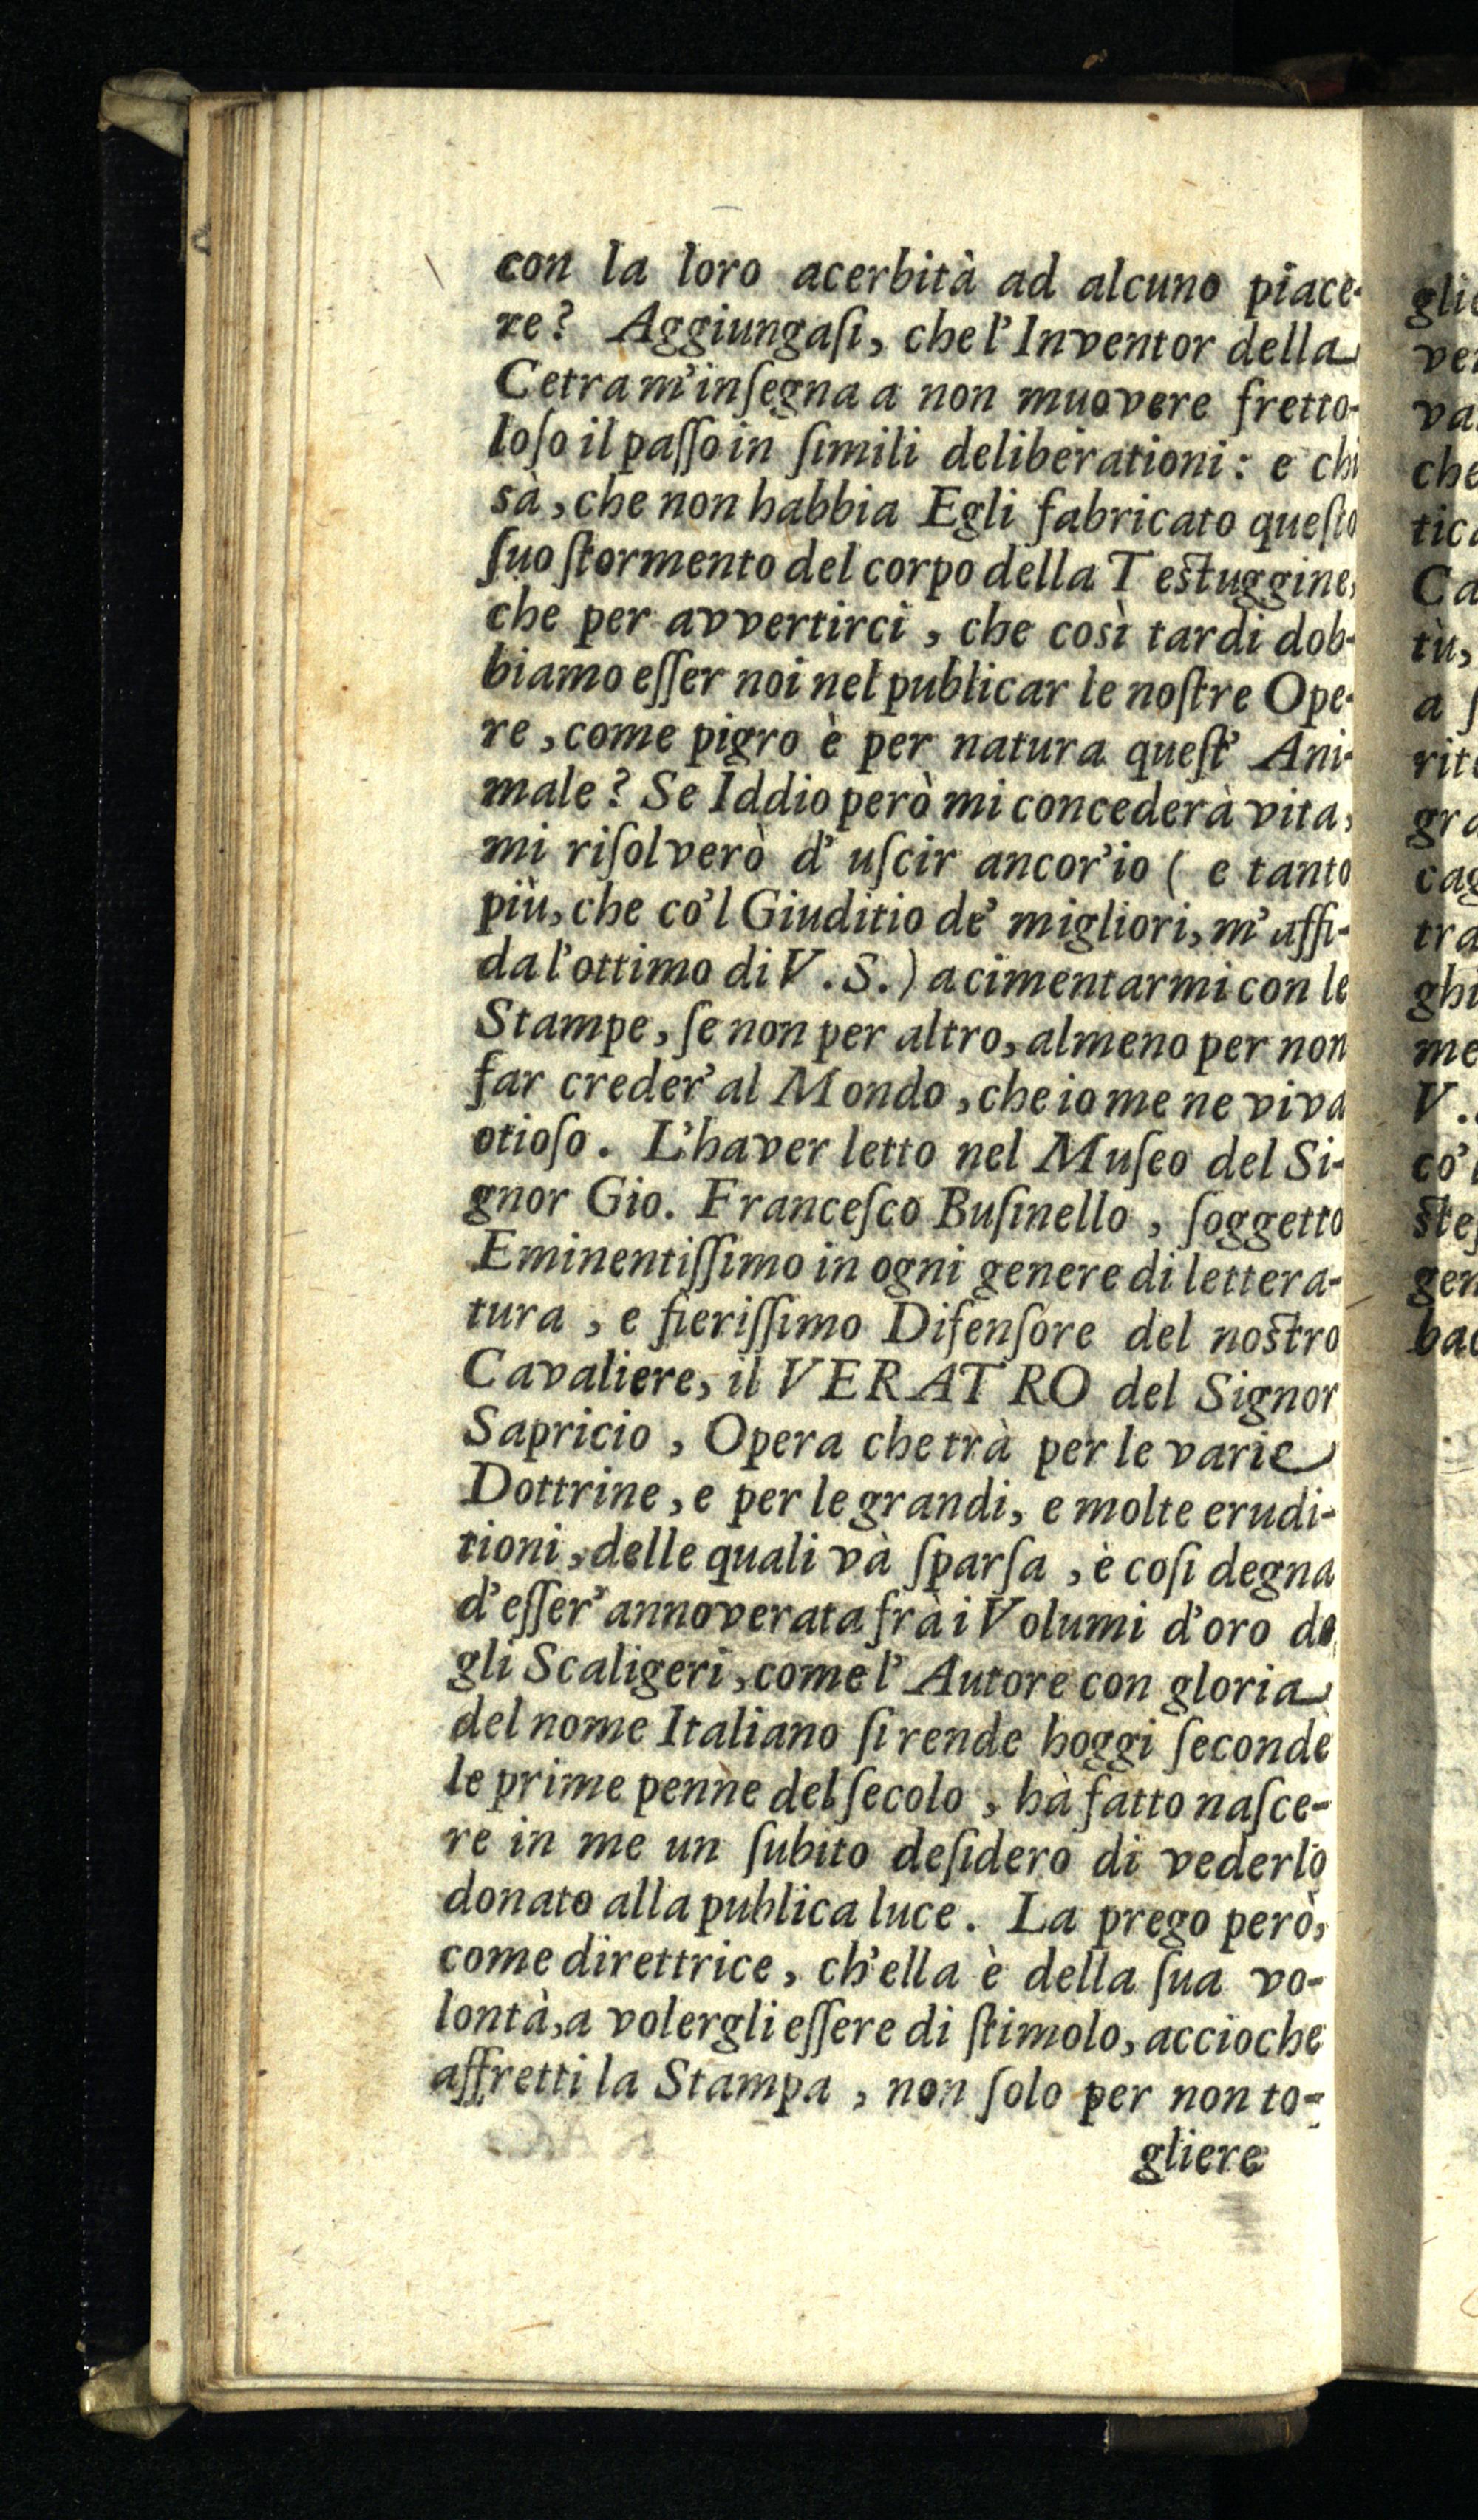 con la loro acerbità ad alcuno piace-
re? Aggiungaſi, che l'Inventor della
Cetra m'inſegna a non muovere fretto-
loſo il paſſo in ſimili deliberationi: e chi
sà, che non habbia Egli fabricato queſto
ſuo ſtormento del corpo della Teſtuggine,
che per avvertirci, che così tardi dob-
biamo eſſer noi nel publicar le noſtre Ope-
re, come pigro è per natura queſt' Ani-
male? Se Iddio però mi concederà vita,
mi riſolverò d' uſcir ancor'io ( e tanto
più, che co'l Giuditio de' migliori, m'affi-
da l'ottimo di V. S.) a cimentarmi con le
Stampe, ſe non per altro, almeno per non
far creder' al Mondo, che io me ne viva
otioſo. L'haver letto nel Muſeo del Si-
gnor Gio. Franceſco Buſinello, ſoggetto
Eminentiſſimo in ogni genere di lettera-
tura, e fieriſſimo Difenſore del noſtro
Cavaliere, il VERATRO del Signor
Sapricio, Opera che trà per le varie
Dottrine, e per le grandi, e molte erudi-
tioni, delle quali và ſparſa, è coſi degna
d'eſſer' annoverata frà i Volumi d'oro de
gli Scaligeri, come l' Autore con gloria
del nome Italiano ſi rende hoggi ſeconde
le prime penne del ſecolo, hà fatto naſce-
re in me un ſubito deſidero di vederlo
donato alla publica luce. La prego però,
come direttrice, ch'ella è della ſua vo-
lontà, a volergli eſſere di ſtimolo, accioche
affretti la Stampa, non ſolo per non to-
gliere